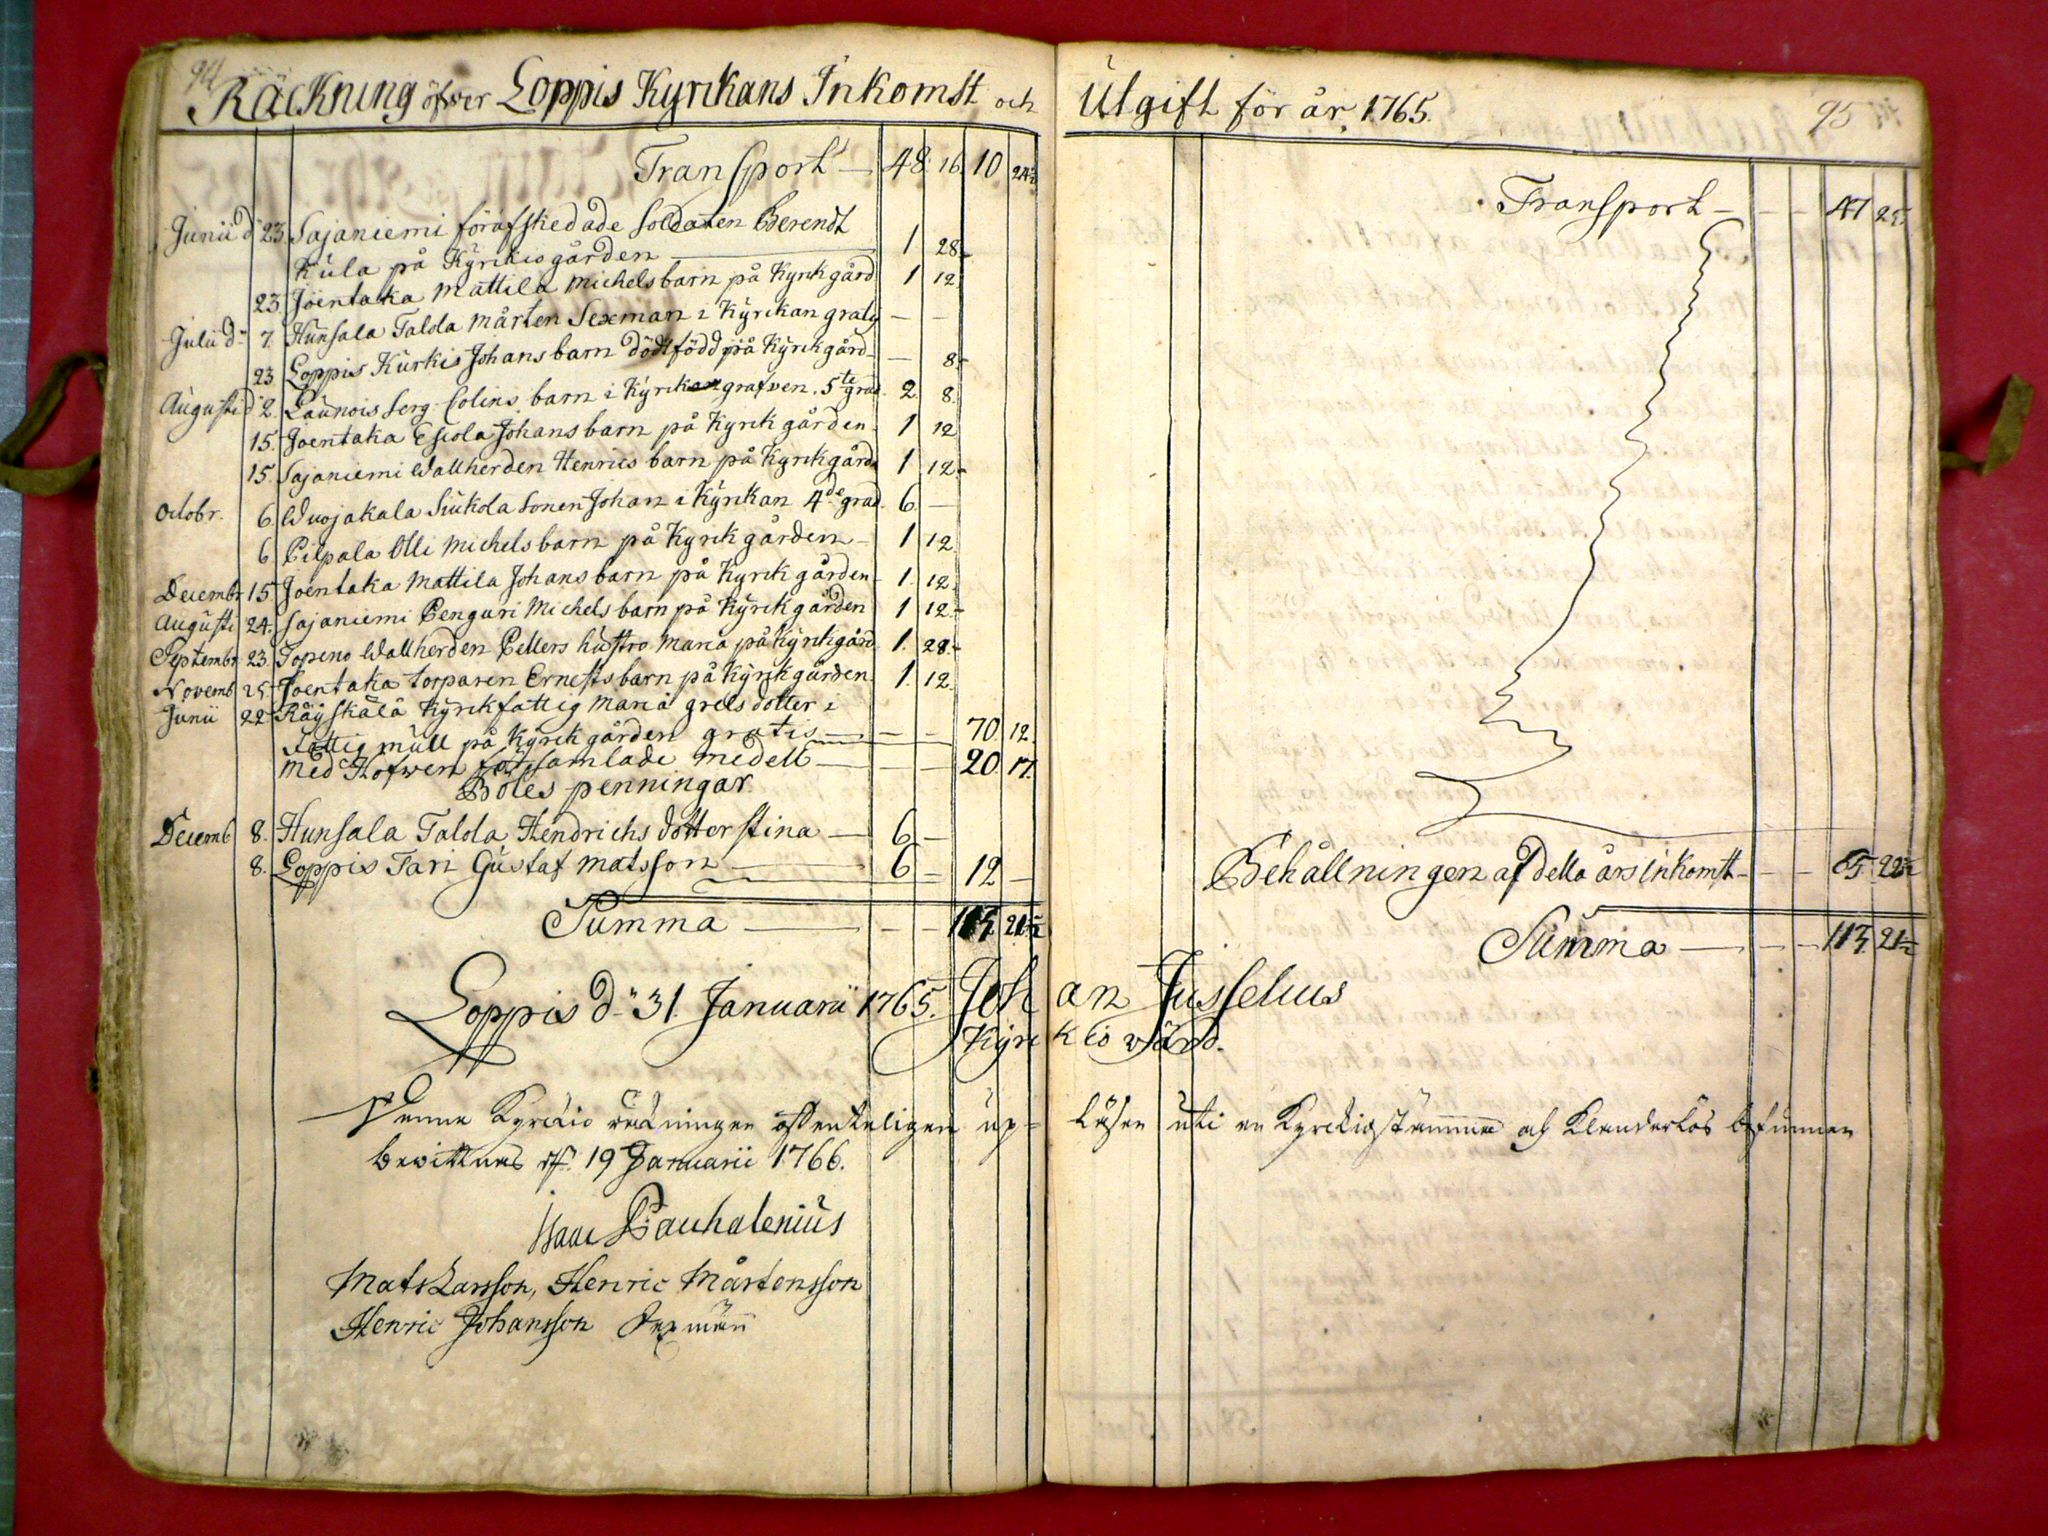 94
Räckning öfwer Loppis Kyrkans Inkomst och
Transport — 48 16 10 24½
Junii d 23 Sajaniemi förafskedade Soldaten Berendt
Kula på Kyrkiogården — 1 28
23 Joentaka Mattila Michels barn på Kyrkgård 1 12
Julii d 7. Hunsala Talola Mårten Sexman i Kyrkan — —
23 Loppis Kurkis Johans barn dödfödd på Kyrkgård — 8
Augusti d 2. Launois Serg. Colins barn i Kyrkangrafven 5te grad 2 8
15. Joentaka Johans barn på Kyrkgården 1 12
15. Sajaniemi Wallherden Henrics barn på Kyrkgård 1 12
Octobr. 6 Wuojakala Siukola Sonen Johan i Kyrkan 4de grad 6 —
6 Pilpala Olli Michels barn på Kyrkgården 1 12
Decembr 15 Joentaka Mattila Johans barn på Kyrkgården 1 12
Augusti 24. Sajaniemi Penguri Michels barn på Kyrkgården 1 12
Septembr 23. Topeno Wallherden Petters hustro Maria på Kyrkgård 1 28
Novemb 25 Joentaka torparen Ernests barn på Kyrkgården 1 12
Junii 22 Räyskälä Kyrkfattig Maria grels dotter i
Fattig mull på Kyrkgården gratis — — 70 12
Med Hofwen samlade medell — — 20 17
Böles penningar
Decemb 8. Hunsala Talola Hendrichs dotter Stina — 6 —
8. Loppis Tari Gustaf Matsson — 6 — 12 —
Summa — — — 113 21½
Loppis d. 31. Januarii 1765.
Utgift för år 1765.
95
Transport — — — 47 25
Behållningen af detta års inkomst — — — 65 22½
Summa — — — 113 21½
Johan Jusselius
Kyrckio värd.
Denna Kyrckio räckningen offenteligen upläsen uti en Kyrckiostämma och Klanderlös befunnen
bewittnas d. 19 Januarii 1766.
Isaac Pauhalenius
Mats Larsson, Henric Mårtensson
Henric Johansson Sexmän